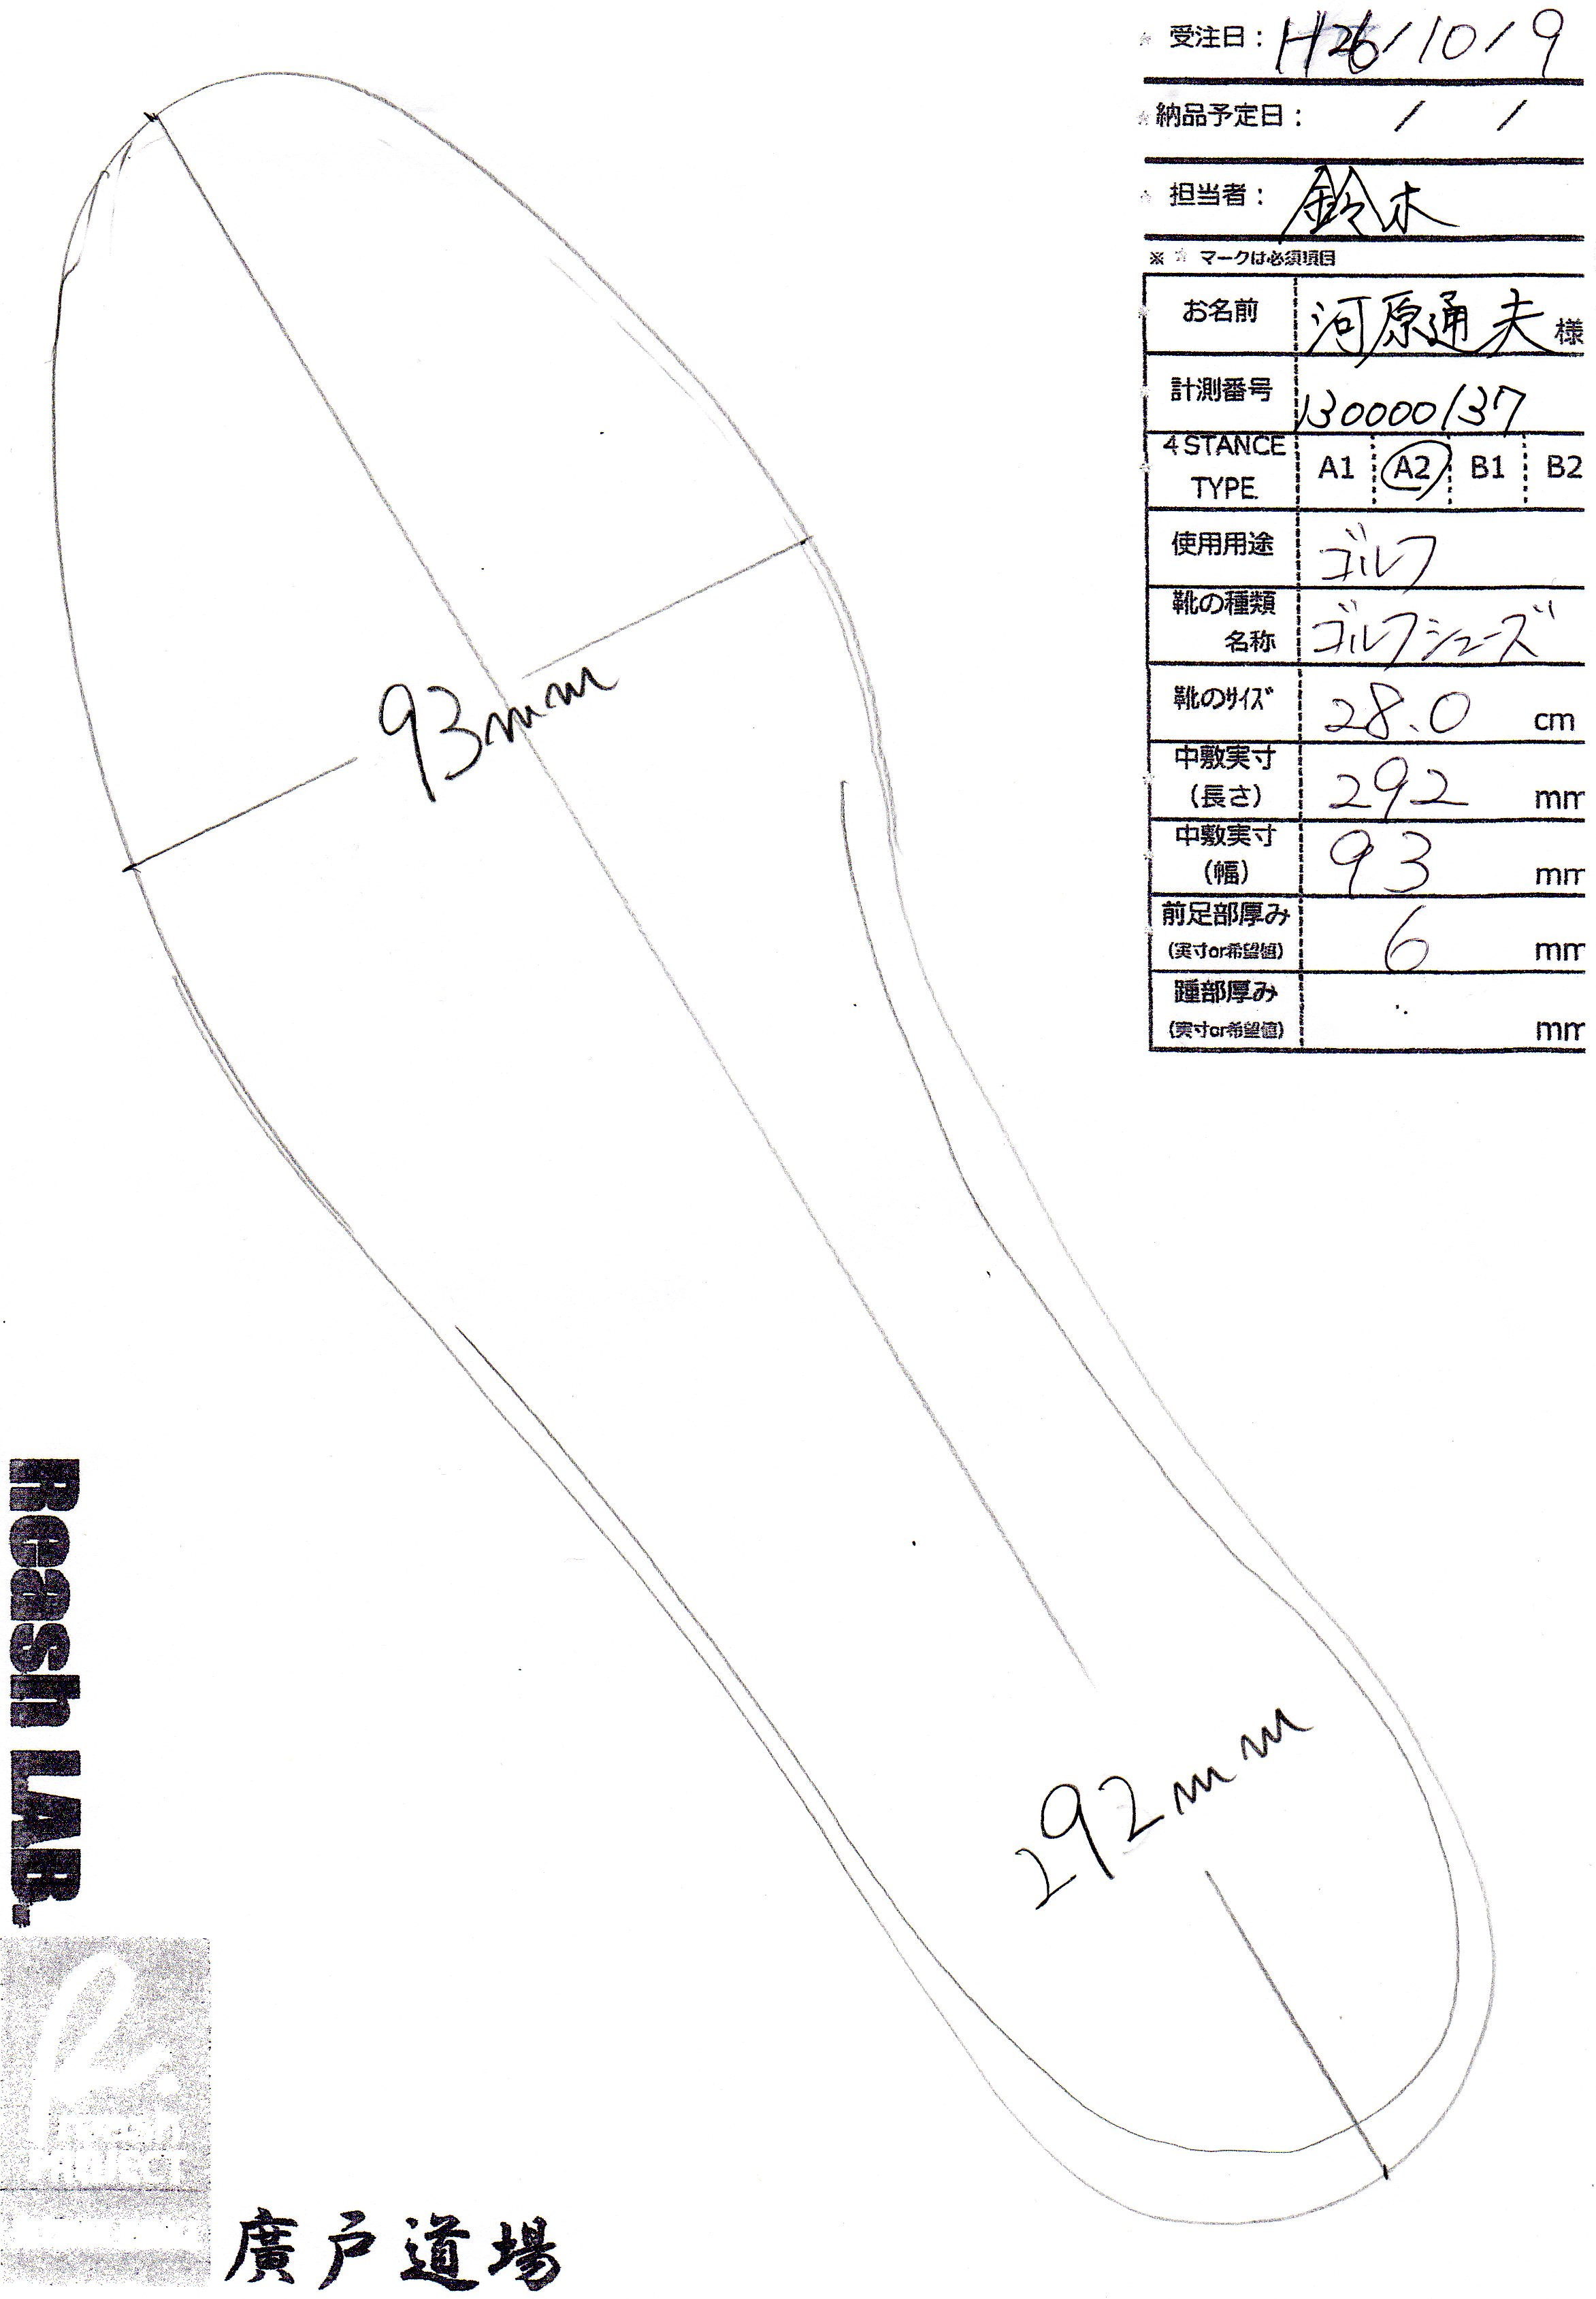 ☆ 受注日： H26/10/9
☆ 納品予定日： / /
☆ 担当者： 鈴木
※ ☆ マークは必須項目
お名前 河原通夫 様
計測番号 130000137
4STANCE TYPE A1 A2 B1 B2
使用用途 ゴルフ
靴の種類 名称 ゴルフシューズ
靴のサイズ 28.0 cm
中敷実寸 (長さ) 292 mm
中敷実寸 (幅) 93 mm
前足部厚み (実寸or希望値) 6 mm
踵部厚み (実寸or希望値) mm
93mm
292mm
Reash LAB.
reash
PROJECT
廣戸道場